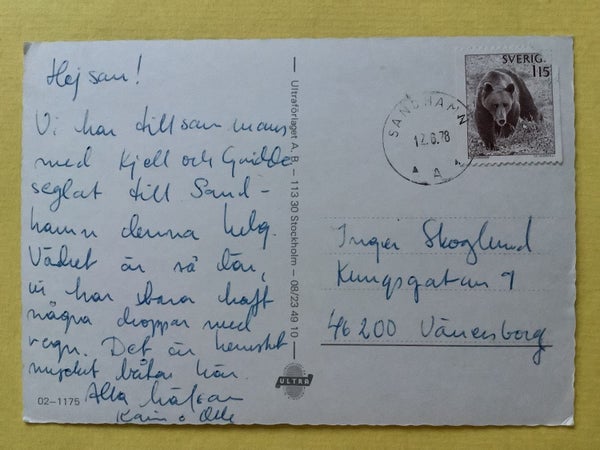 Hej san!
Vi har tillsammans
med Kjell och Gudde
seglat till Sand-
hamn denna helg.
Vädret är så där,
vi har bara haft
några droppar med
regn. Det är hemskt
mycket båtar här.
Alla hälsar
Karin o Olle
02-1175
Ultraförlaget A.B. – 113 30 Stockholm – 08/23 49 10
ULTRA
SVERIGE
115
SANDHAMN
17.6.78
A
Inger Skoglund
Kungsgatan 9
46200 Vänersborg